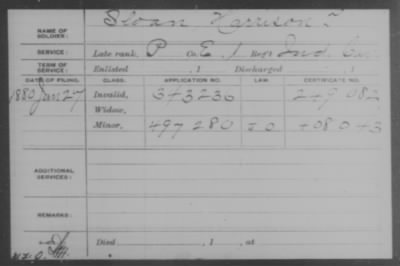 NAME OF SOLDIER: Sloan Harrison T
SERVICE: Late rank, P Co. E, 1 Reg't Ind. Cav.
TERM OF SERVICE: Enlisted , 1 Discharged , 1
DATE OF FILING. CLASS. APPLICATION NO. LAW. CERTIFICATE NO.
1880 Jan 27 Invalid, 343236 249 082
Widow,
Minor, 497 280 408 043
ADDITIONAL SERVICES:
REMARKS:
Died , 1 , at